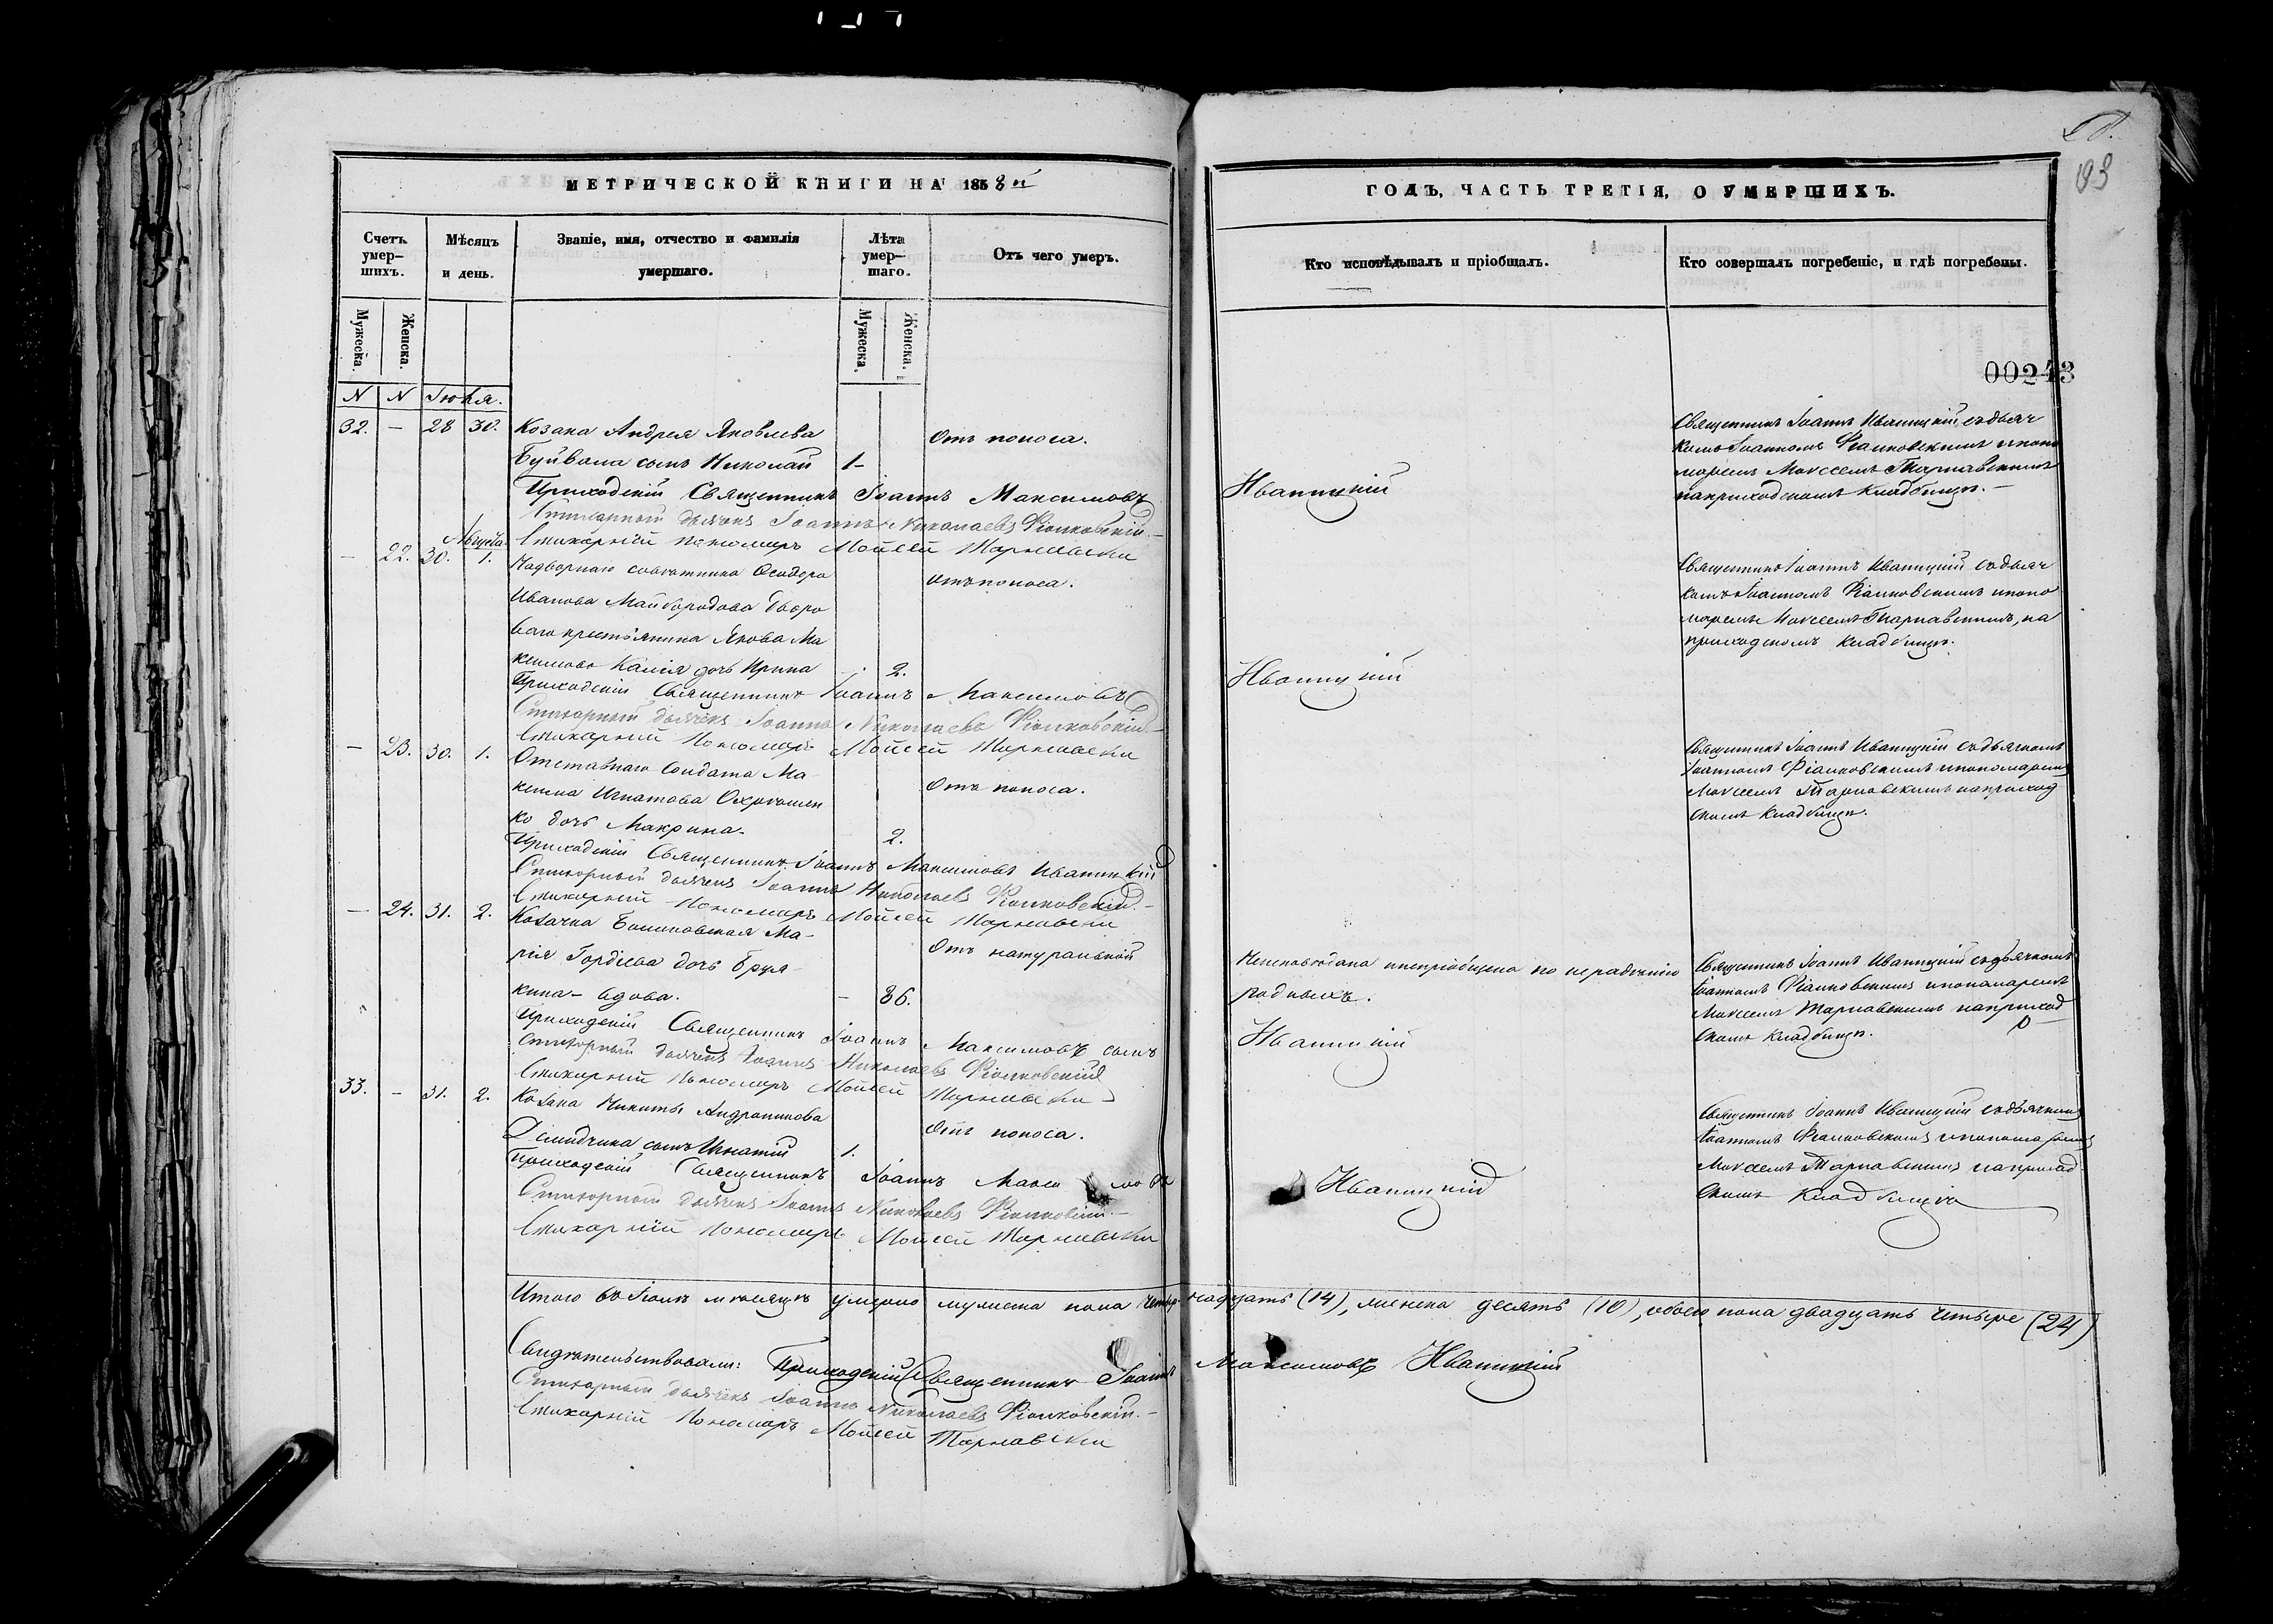 93
МЕТРИЧЕСКОЙ КНИГИ НА 1858 й
ГОДЪ, ЧАСТЬ ТРЕТІЯ, О УМЕРШИХЪ.
Счетъ умер-шихъ.
Мѣсяцъ и день.
Званіе, имя, отчество и фамилія умершаго.
Лѣта умер-шаго.
Отъ чего умеръ.
Кто исповѣдывалъ и пріобщалъ.
Кто совершалъ погребеніе, и гдѣ погребены.
Мужеска.
Женска.
Мужеска.
Женска.
00243
N N Іюля.
32. — 28 30. Козака Андрея Яковлева
Отъ поноса.
Буйвала сынъ Николай 1-
Священникъ Іоаннъ Иваницкій съ дьяч
комъ Іоанномъ Фіалковскимъ и поно
маремъ Моѵсеемъ Тарнавскимъ
на приходскомъ кладбищѣ.-
Приходскій Священникъ Іоаннъ Максимовъ
Иваницкій
Стихарный дьячекъ Іоаннъ Николаевъ Фіалковскій.-
Стихарній Пономаръ Мойсей Тарнавски
Августа.
— 22. 30. 1. Надворнаго совѣтника Ѳеодора
Отъ поноса.
Иванова Майбородова дворо
ваго крестьянина Якова Ма
ксимова дочь Ирина - 2.
Священникъ Іоаннъ Иваницкій съ дьяч
комъ Іоанномъ Фіалковскимъ и поно
маремъ Моѵсеемъ Тарнавскимъ, на
приходскомъ кладбищѣ.
Приходскій Священникъ Іоаннъ Максимовъ
Иваницкій
Стихарный дьячекъ Іоаннъ Николаевъ Фіалковскій.-
Стихарній Пономаръ Мойсей Тарнавски
— 23. 30. 1. Отставнаго Солдата Ма
Отъ поноса.
ксима Игнатова
ко дочь Макрина. 2.
Священникъ Іоаннъ Иваницкій съ дьячкомъ
Іоанномъ Фіалковскимъ и пономаремъ
Моѵсеемъ Тарнавскимъ на приход
скомъ кладбищѣ.
Приходскій Священникъ Іоаннъ Максимовъ Иваницкій
Стихарный дьячекъ Іоаннъ Николаевъ Фіалковскій.-
Стихарній Пономаръ Мойсей Тарнавски
— 24. 31. 2. Козачка Ма-
Отъ натуральной
рія Гордіева дочь
кина- вдова. - 86.
Неисповѣдана и непріобщена по нерадѣнію
родныхъ.
Священникъ Іоаннъ Иваницкій съ дьячкомъ
Іоанномъ Фіалковскимъ и пономаремъ
Моѵсеемъ Тарнавскимъ на приход
скомъ кладбищѣ.
Приходскій Священникъ Іоаннъ Максимовъ сынъ
Иваницкій
Стихарный дьячекъ Іоаннъ Николаевъ Фіалковскій
Стихарній Пономаръ Мойсей Тарнавски
33. — 31. 2. Козака Никиты Андроникова
Отъ поноса.
Демидчика сынъ Игнатій 1.
Священникъ Іоаннъ Иваницкій съ дьячкомъ
Іоанномъ Фіалковскимъ и пономаремъ
Моѵсеемъ Тарнавскимъ на приход
скомъ кладбищѣ
Приходскій Священникъ Іоаннъ Максимовъ
Иваницкій
Стихарный дьячекъ Іоаннъ Николаевъ Фіалковскій.-
Стихарній Пономаръ Мойсей Тарнавски
Итого въ Іюлѣ мѣсяцѣ умерло мужеска пола четырнадцать (14), женска десять (10), обоего пола двадцать четыре (24)
Свидѣтельствовали: Приходскій Священникъ Іоаннъ Максимовъ Иваницкій
Стихарный дьячекъ Іоаннъ Николаевъ Фіалковскій.-
Стихарній Пономаръ Мойсей Тарнавски